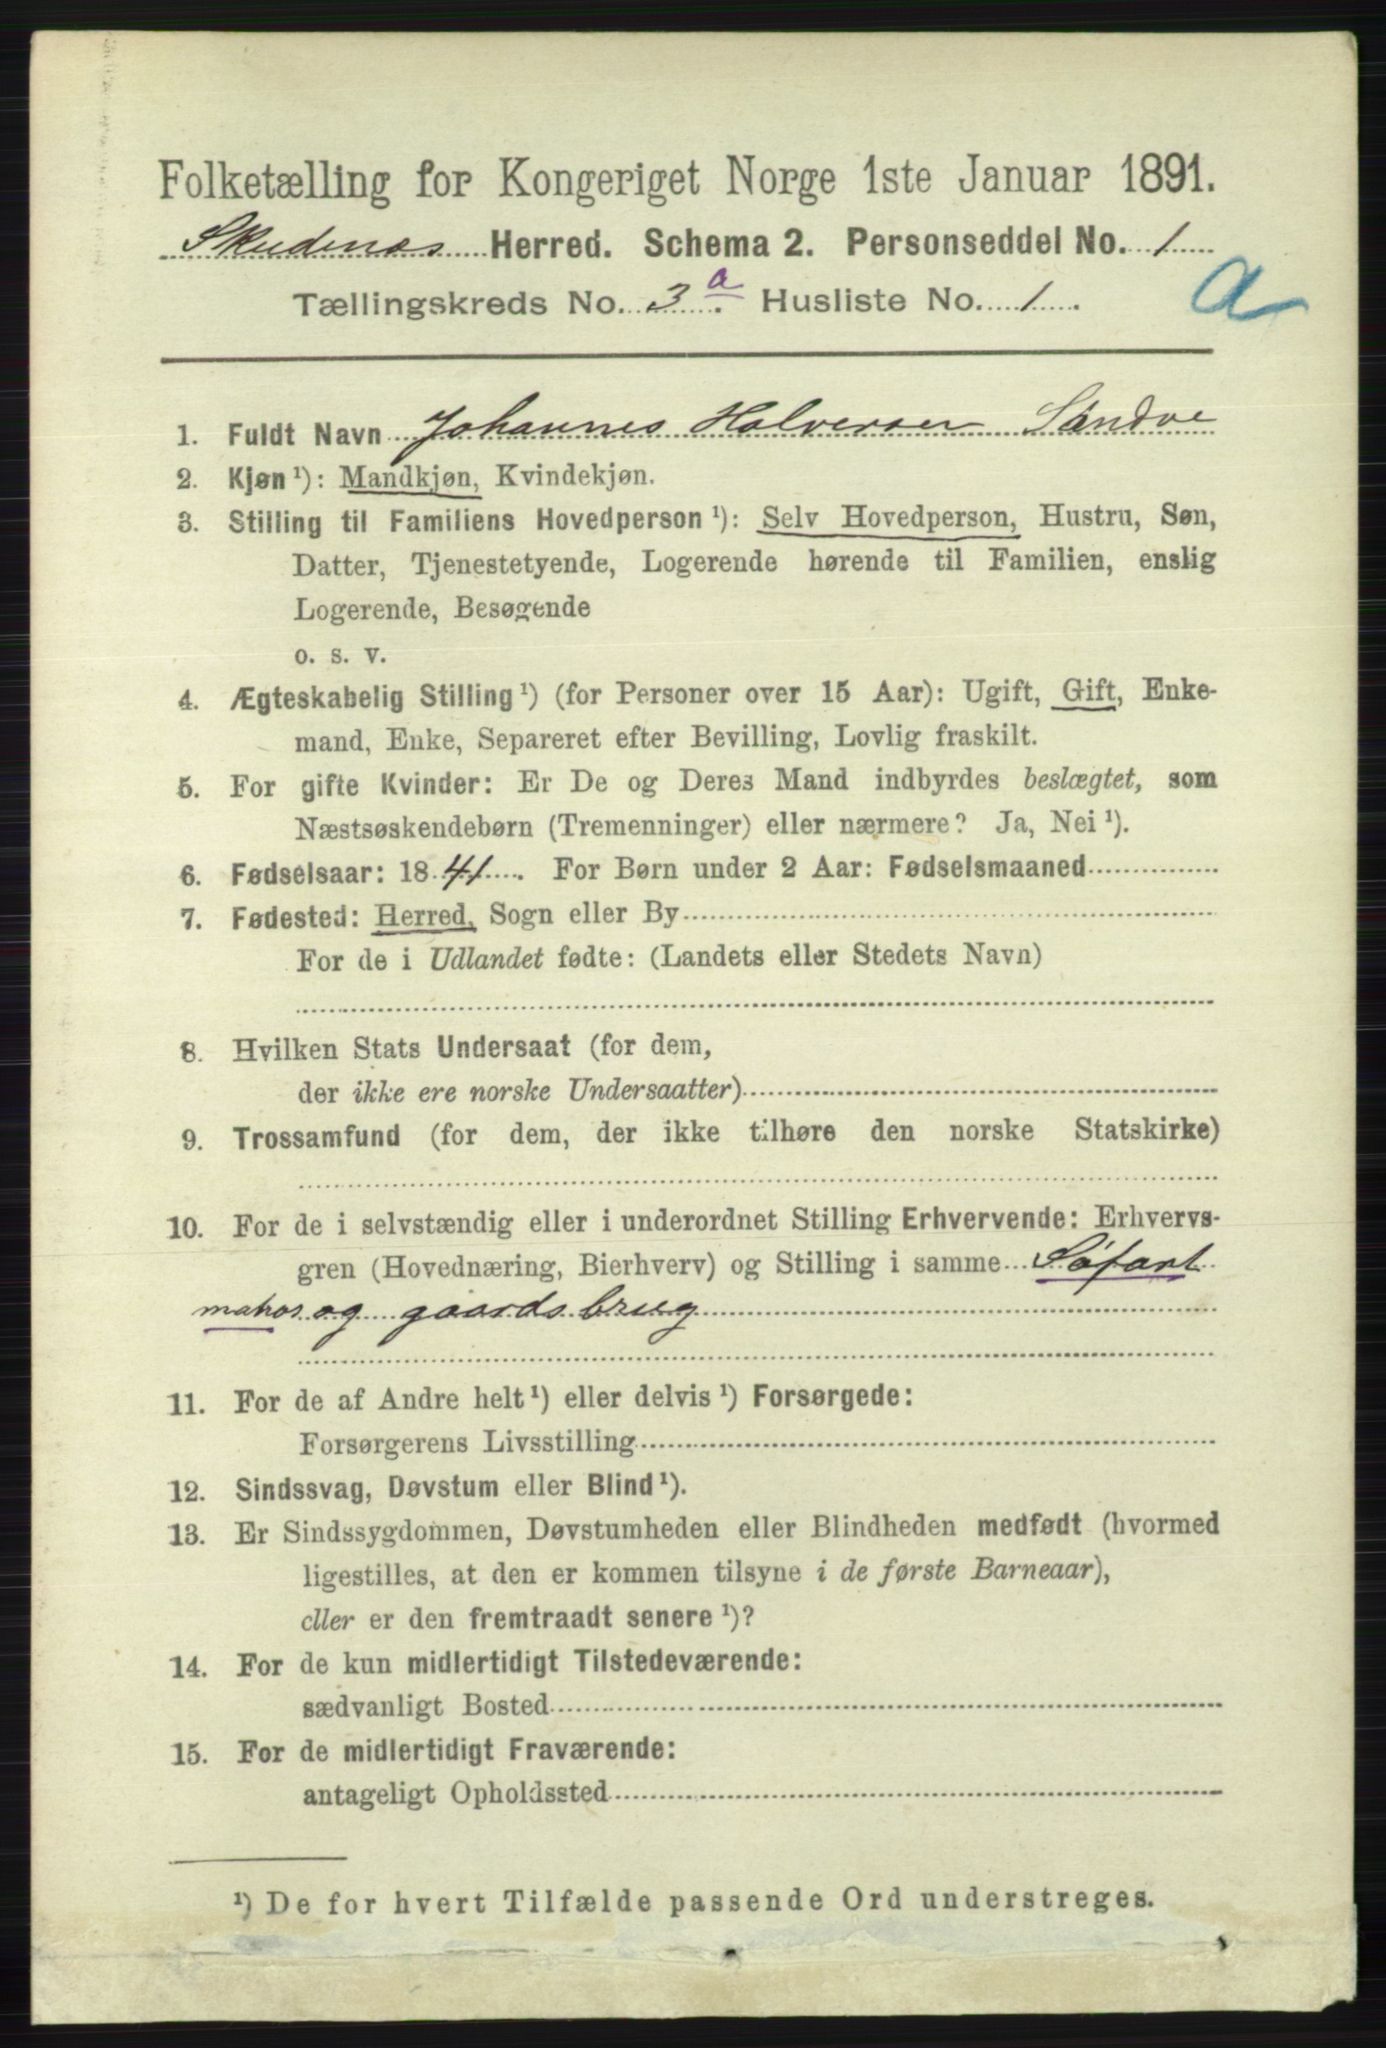 Folketælling for Kongeriget Norge 1ste Januar 1891.
Skudenæs Herred. Schema 2. Personseddel No. 1
Tællingskreds No. 3 a. Husliste No. 1.
a
1. Fuldt Navn Johannes Halversen Sandve
2. Kjøn ¹): Mandkjøn, Kvindekjøn.
3. Stilling til Familiens Hovedperson ¹): Selv Hovedperson, Hustru, Søn,
Datter, Tjenestetyende, Logerende hørende til Familien, enslig
Logerende, Besøgende
o. s. v.
4. Ægteskabelig Stilling ¹) (for Personer over 15 Aar): Ugift, Gift, Enke-
mand, Enke, Separeret efter Bevilling, Lovlig fraskilt.
5. For gifte Kvinder: Er De og Deres Mand indbyrdes beslægtet, som
Næstsøskendebørn (Tremenninger) eller nærmere? Ja, Nei ¹).
6. Fødselsaar: 1841. For Børn under 2 Aar: Fødselsmaaned
7. Fødested: Herred, Sogn eller By
For de i Udlandet fødte: (Landets eller Stedets Navn)
8. Hvilken Stats Undersaat (for dem,
der ikke ere norske Undersaatter)
9. Trossamfund (for dem, der ikke tilhøre den norske Statskirke)
10. For de i selvstændig eller i underordnet Stilling Erhvervende: Erhvervs-
gren (Hovednæring, Bierhverv) og Stilling i samme Søfart
matros og gaardsbrug
11. For de af Andre helt ¹) eller delvis ¹) Forsørgede:
Forsørgerens Livsstilling
12. Sindssvag, Døvstum eller Blind ¹).
13. Er Sindssygdommen, Døvstumheden eller Blindheden medfødt (hvormed
ligestilles, at den er kommen tilsyne i de første Barneaar),
eller er den fremtraadt senere ¹)?
14. For de kun midlertidigt Tilstedeværende:
sædvanligt Bosted
15. For de midlertidigt Fraværende:
antageligt Opholdssted
¹) De for hvert Tilfælde passende Ord understreges.